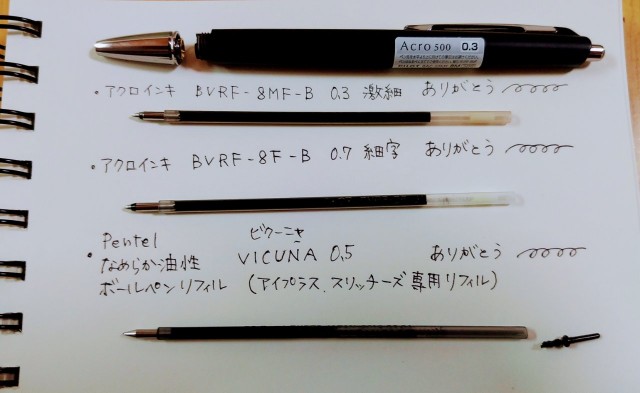 Acro 500 0.3
・アクロインキ BVRF-8MF-B 0.3 激細 ありがとう
・アクロインキ BVRF-8F-B 0.7 細字 ありがとう
Pentel ビクーニャ
・なめらか油性 VICUÑA 0.5 ありがとう
ボールペンリフィル (アイプラス、スリッチーズ専用リフィル)